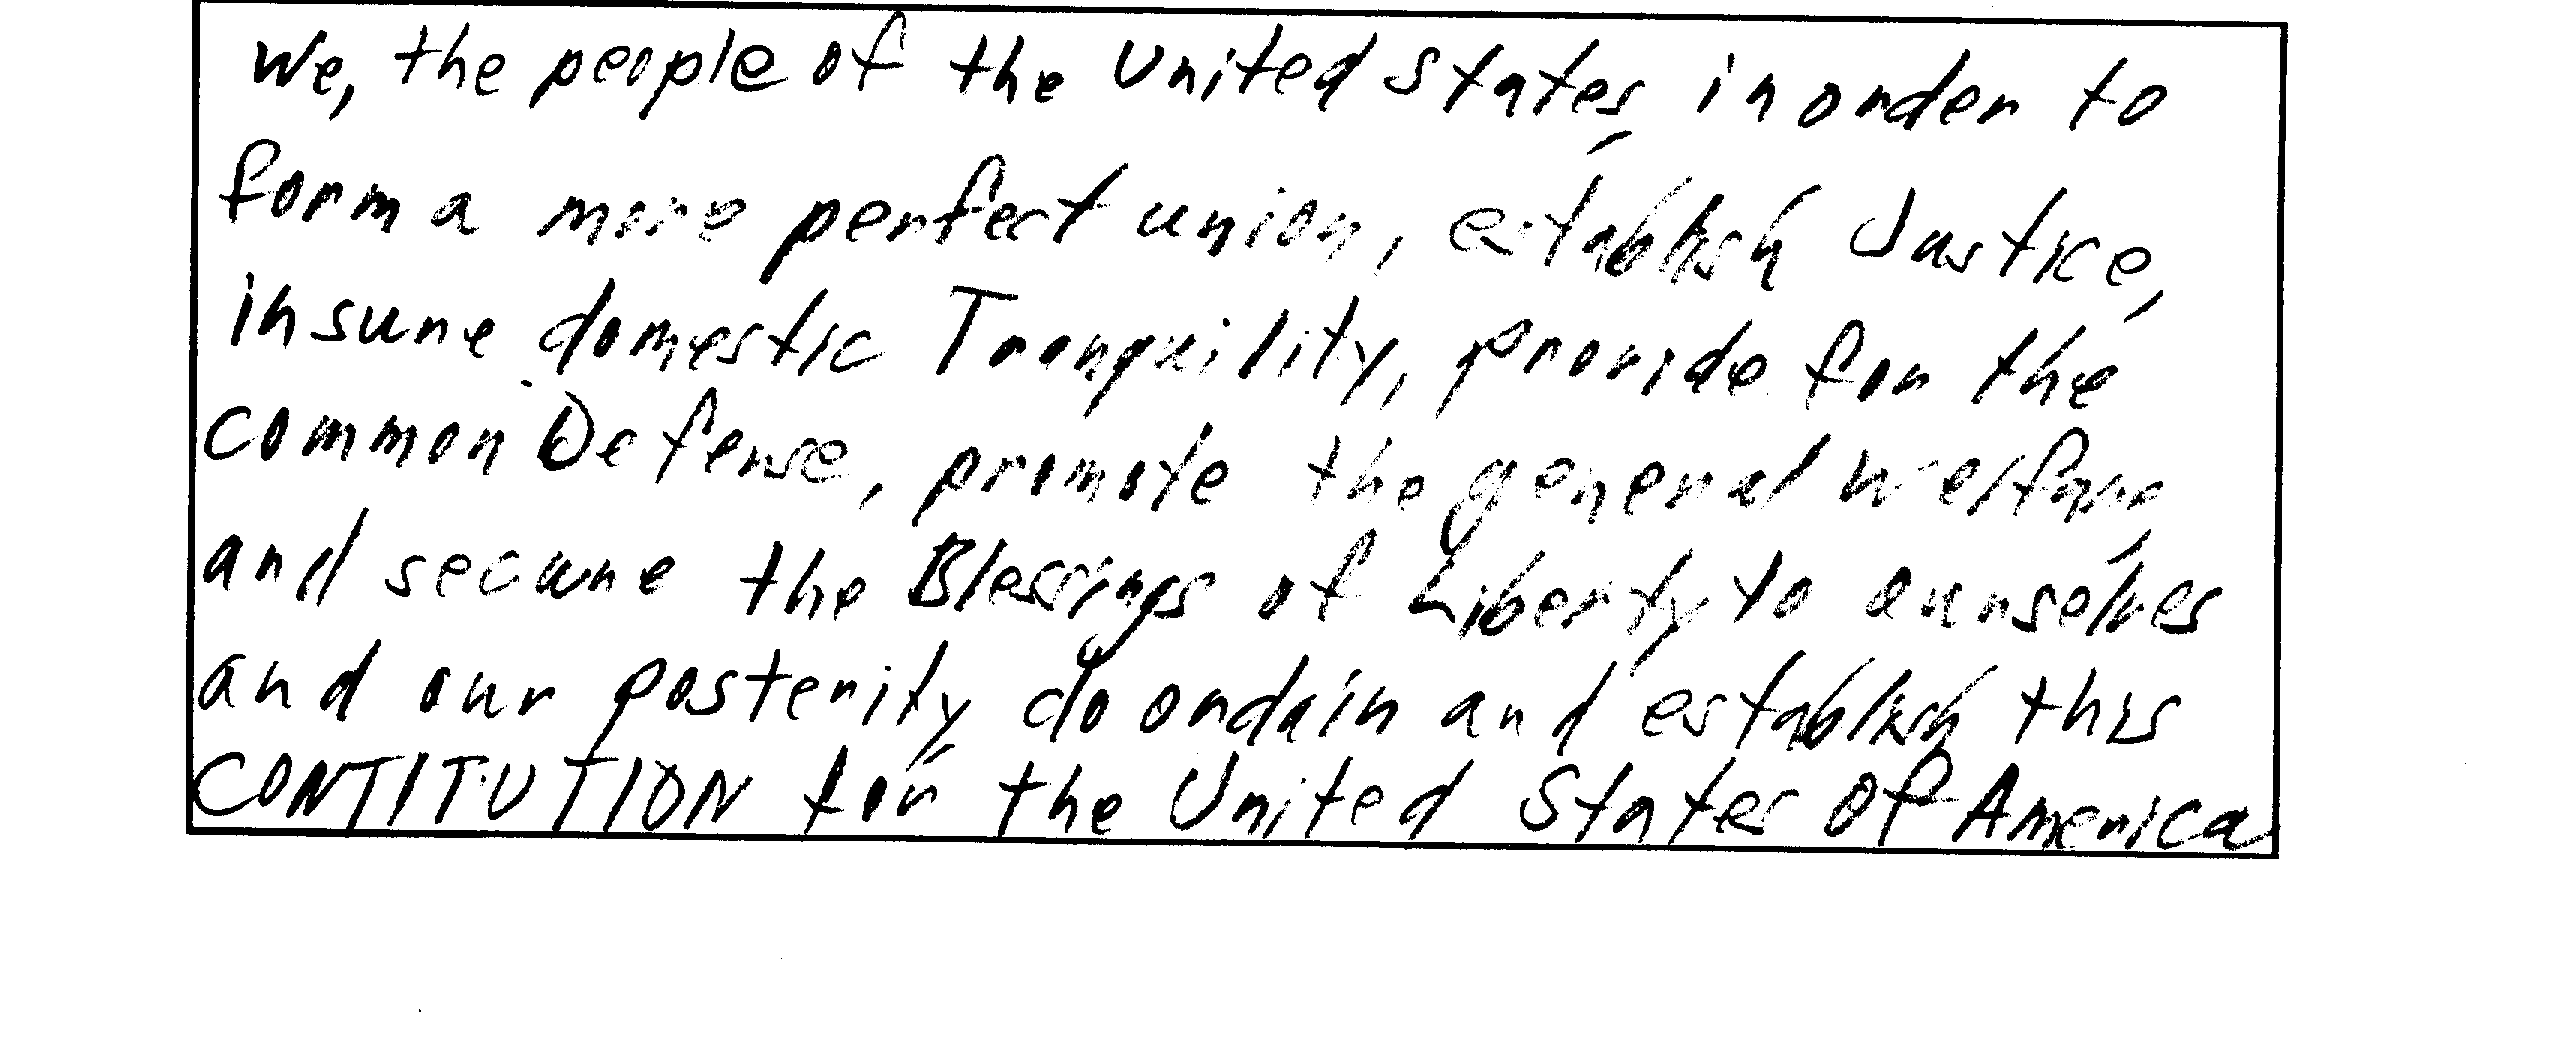 We, the people of the United States, in order to
form a more perfect union, establish Justice,
insure domestic Tranquility, provide for the
common Defense, promote the general welfare,
and secure the Blessings of Liberty to ourselves
and our posterity, do ordain and establish this
CONTITUTION for the United States Of America